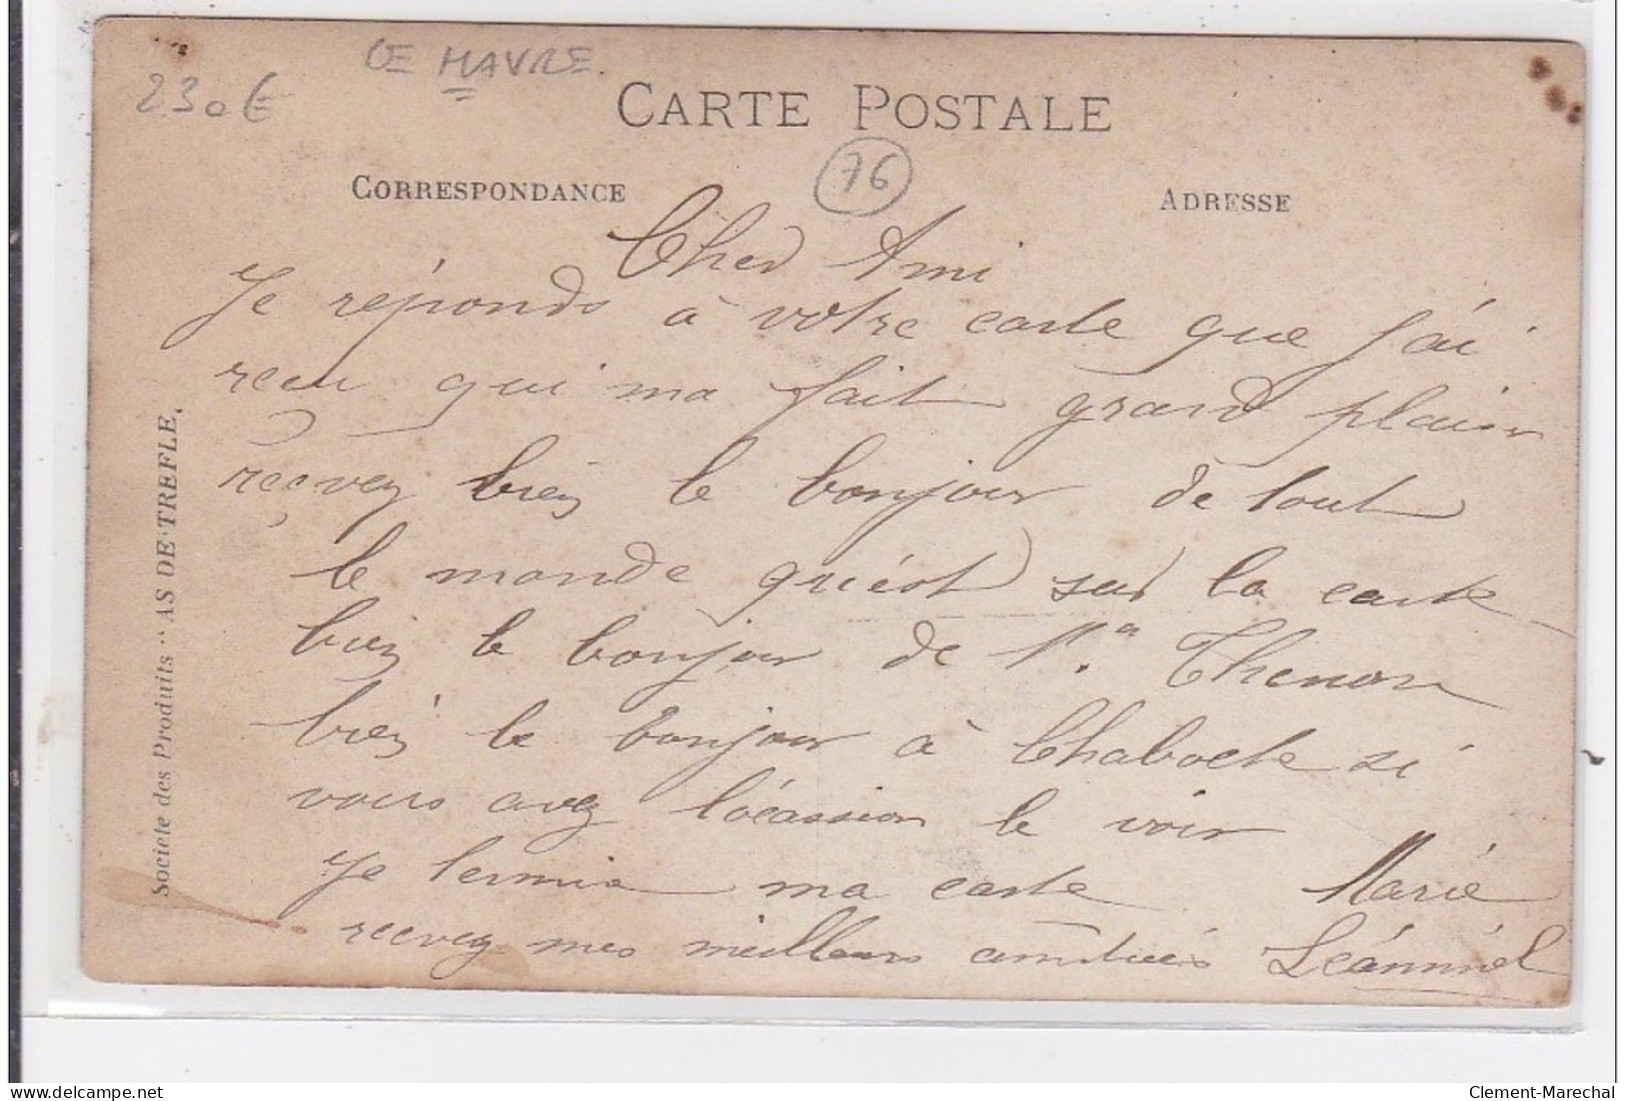 LE HAVRE
230€
CARTE POSTALE
76
CORRESPONDANCE
ADRESSE
Cher Ami
Je réponds à votre carte que j'ai
recu qui ma fait grand plaisir
reçvez bien le bonjour de tout
le monde qu'est sur la carte
bien le bonjour de Thenon
bien le bonjour à Chaboche si
vous avez l'ocassion le voir
Je termine ma carte Marie
recvez mes meilleurs amitiés
Societe des Produits "AS DE TREFLE.
delcampe.net
Clement-Marechal